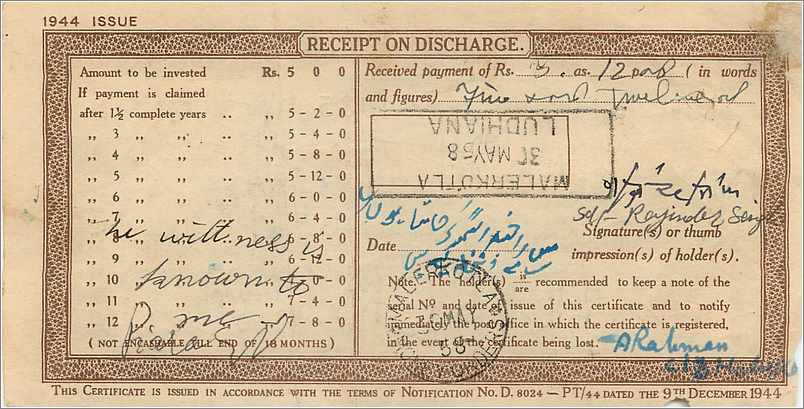 1944 ISSUE
RECEIPT ON DISCHARGE.
Amount to be invested Rs. 5 0 0
If payment is claimed
after 1½ complete years .. ,, 5 - 2 - 0
,, 3 ,, ,, .. ,, 5 - 4 - 0
,, 4 ,, ,, .. ,, 5 - 8 - 0
,, 5 ,, ,, .. ,, 5 - 12 - 0
,, 6 ,, ,, .. ,, 6 - 0 - 0
,, 7 ,, ,, .. ,, 6 - 4 - 0
,, 8 ,, ,, .. ,, - 8 - 0
,, 9 ,, ,, .. ,, 6 - 12 - 0
,, 10 ,, ,, .. ,, - 0
,, 11 ,, ,, .. ,, - 4 - 0
,, 12 ,, ,, .. ,, 7 - 8 - 0
The witness is
known to
me
( NOT ENCASHABLE TILL END OF 18 MONTHS )
Received payment of Rs. 5 . as. 12 ( in words
and figures) Five and Twelve
MALERKOTLA
30 MAY 58
LUDHIANA
Self - Rajinder Singh
Signature(s) or thumb
impression(s) of holder(s).
Date
MALERKOTLA
30 MAY
58
Note. The holder(s) is/are recommended to keep a note of the
serial No and date of issue of this certificate and to notify
immediately the post office in which the certificate is registered,
in the event of the certificate being lost.
A Rahman
THIS CERTIFICATE IS ISSUED IN ACCORDANCE WITH THE TERMS OF NOTIFICATION No. D. 8024 — PT/44 DATED THE 9TH DECEMBER 1944